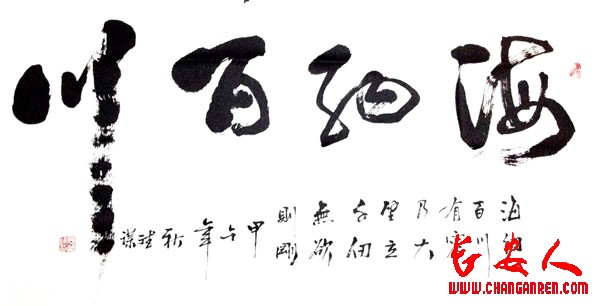 海納百川
海納
百川
有容
乃大
壁立
千仞
無欲
則剛
甲午年
长安人
WWW.CHANGANREN.COM